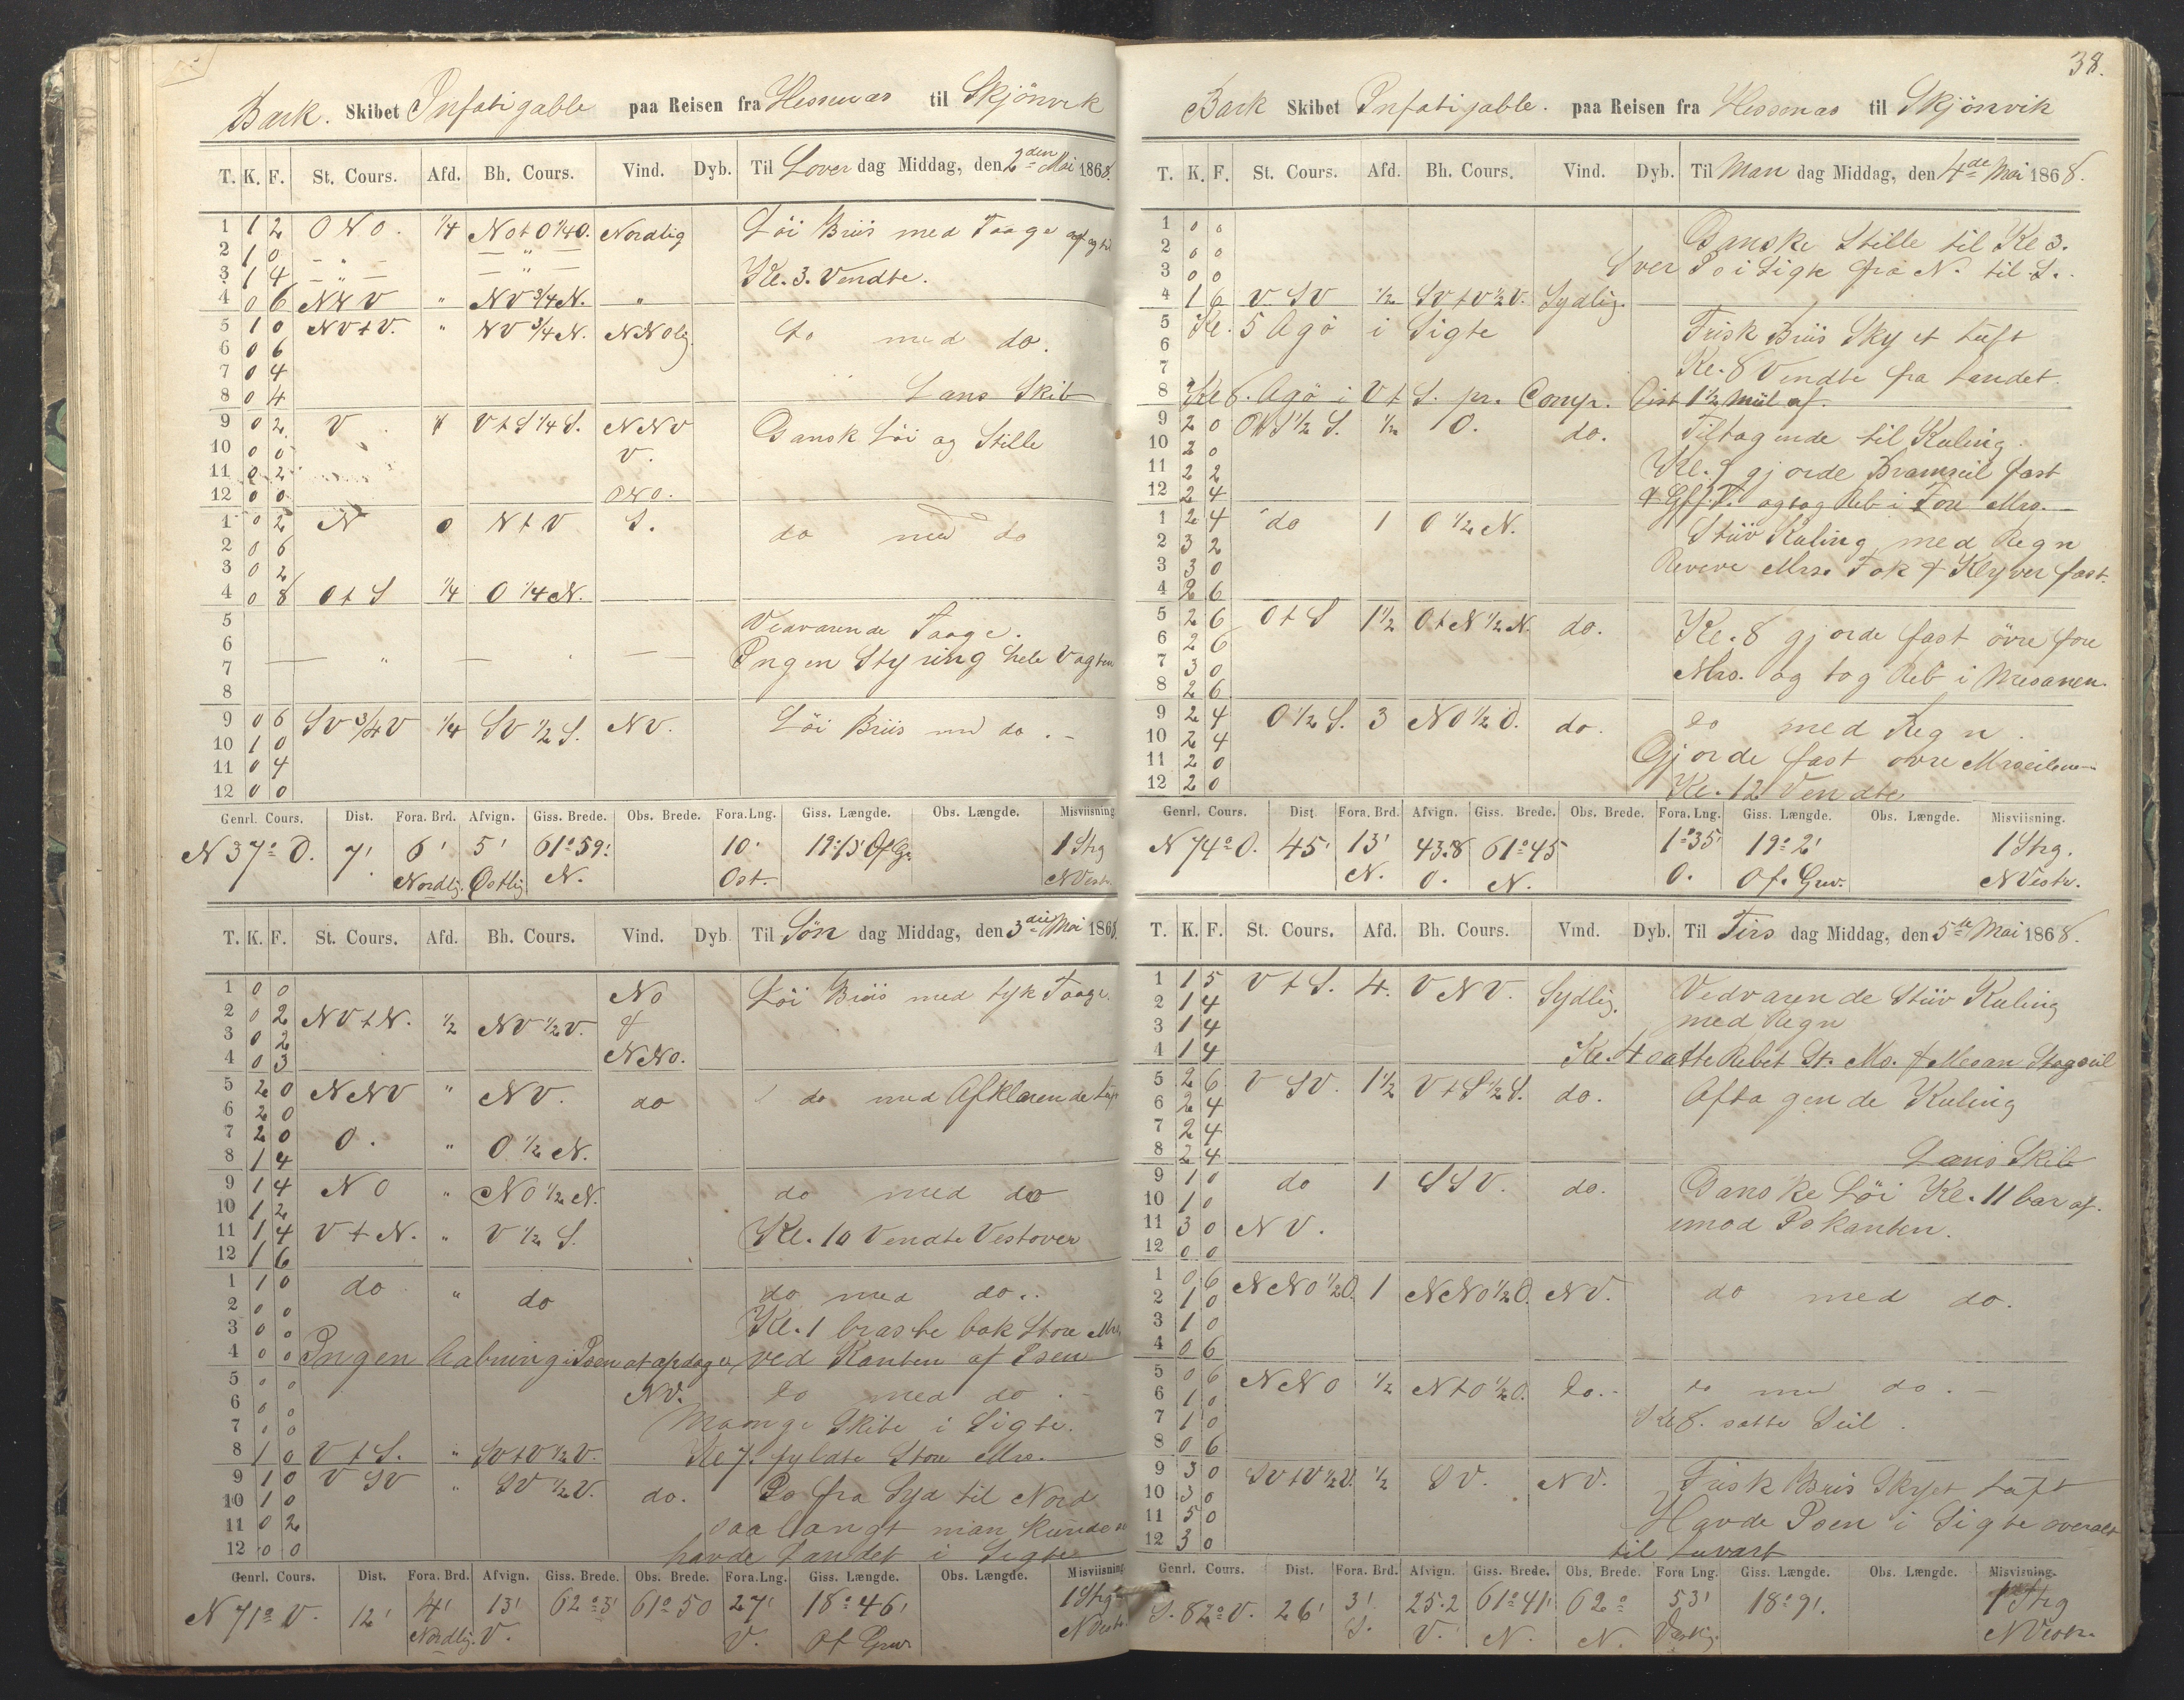 Bark. Skibet Infatigable paa Reisen fra Hessenæs til Skjönvik
T. K. F. St. Cours. Afd. Bh. Cours. Vind. Dyb. Til Löverdag Middag, den 2den Mai 1868.
1 1 2 ONO. 1/4 NotO 1/4 O. Nordlig Löi Briis med Taage
2 1 0 — " — — " —
3 1 4 — " — — " — Kl. 3. Vendte.
4 0 6 NNV " NV 3/4 N. "
5 1 0 NVtV. " NV 3/4 N. NNOlig do med do.
6 0 6
7 0 4
8 0 4 Lans Skib
9 0 2 V VtS 1/4 S. NNV Ganske Löi og Stille
10 0 0 V.
11 0 2
12 0 0 ONO.
1 0 2 N 0 NtV S. do med do
2 0 6
3 0 2
4 0 8 OtS 1/4 O 1/4 N.
5 Vedvarende Taage.
6 — " — — Ingen Styring hele Vagten
7
8
9 0 6 SV 3/4 V 1/4 SV 1/2 S. NV. Löi Briis med do. -
10 1 0
11 0 4
12 0 0
Genrl. Cours. Dist. Fora. Brd. Afvign. Giss. Brede. Obs. Brede. Fora. Lng. Giss. Længde. Obs. Længde. Misviisning
N 37° O. 7' 6' 5' 61° 59' 10' 19° 13' Of Gr. 1 Strg
Nordlig. Østlig N. Ost. NVest.
T. K. F. St. Cours. Afd. Bh. Cours. Vind. Dyb. Til Søndag Middag, den 3die Mai 1868.
1 0 0 NO Löi Briis med tyk Taage.
2 0 2 NVtN. 1/2 NV 1/2 V. &
3 0 2
4 0 3 NNO.
5 2 0 NNV " NV. do do med Afklarende
6 2 0
7 2 0 O. " O 1/2 N.
8 1 4
9 1 4 NO " NO 1/2 N. do med do
10 1 2
11 1 4 VtN. " V 1/2 S. Kl. 10 Vendte Vestover
12 1 6
1 1 0 do " do do med do..
2 0 0
3 0 0 Kl. 1 braste bak Store Mrs
4 0 0 Ingen Aabning i Isen at opdage, ved Kanten af Isen
5 0 0 NV. do med do. -
6 0 0 Mange Skibe i Sigte.
7 0 0
8 1 0 VtS. " SVtV 1/2 V. Kl 7. fyldte Store Mrs.
9 1 0 VSV " SV 1/2 V. do. Is fra Syd til Nord
10 1 0
11 0 2 saa langt man kunde se
12 0 0 havde Landet i Sigte
Genrl. Cours. Dist. Fora. Brd. Afvign. Giss. Brede. Obs. Brede. Fora. Lng. Giss. Længde. Obs. Længde. Misviisning
N 71° V. 12' 4' 13' 62° 3' 61° 50 27' 18° 46' 1 Strg
Nordlig. V. V. Of Grw. NVest.
38.
Bark Skibet Infatigable. paa Reisen fra Hessenæs til Skjönvik
T. K. F. St. Cours. Afd. Bh. Cours. Vind. Dyb. Til Mandag Middag, den 4de Mai 1868.
1 0 0 Ganske Stille til Kl 3.
2 0 0
3 0 0 Svær Is i Sigte fra N. til S.
4 1 6 VSV 1/2 SVtV 1/2 V. Sydlig.
5 Kl. 5 Agö i Sigte Frisk Briis Skyet Luft
6
7 Kl. 8 Vendte fra Landet.
8 Kl 8. Agö i VtS. pr. Comp. Dist 1 1/2 Miil af.
9 2 0 1/2 S. 1/2 O. do. Tiltagende til Kuling.
10 2 0
11 2 2 Kl. 9 gjorde Bramseil fast
12 2 4 & Gff. T. og tog Reb i Fore Mrs.
1 2 4 do 1 O 1/2 N. Stiiv Kuling med Regn
2 3 2
3 3 0 Reveve Mrs. Fok & Klyver fast.
4 2 6
5 2 6 OtS 1 1/2 OtN 1/2 N. do. Kl. 8 gjorde fast övre fore
6 2 6
7 3 0 Mrs. og tog Reb i Mesanen.
8 2 6
9 2 4 O 1/2 S. 3 NO 1/2 O. do. do med Regn.
10 2 4
11 2 0 Gjorde fast övre Mrseilene
12 2 0 Kl. 12 Vendte
Genrl. Cours. Dist. Fora. Brd. Afvign. Giss. Brede. Obs. Brede. Fora. Lng. Giss. Længde. Obs. Længde. Misviisning.
N 74° O. 45' 13' 43.8 61° 45 1° 35' 19° 2' 1 Strg.
N. O. N. O. Of. Grw. NVestr.
T. K. F. St. Cours. Afd. Bh. Cours. Vind. Dyb. Til Tirsdag Middag, den 5te Mai 1868.
1 1 5 VtS. 4. VNV. Sydlig. Vedvarende Stiiv Kuling
2 1 4 med Regn
3 1 4
4 1 4 Kl. 4 satte Rebet St. Ms. & Mesan Stagseil
5 2 6 VSV. 1 1/2 VtS 1/2 S. do. Aftagende Kuling
6 2 4
7 2 4
8 2 4 Lans Skib
9 1 0 do 1 SSV. do. Ganske Löi Kl. 11 bar af.
10 1 0
11 3 0 NV. imod Iskanten.
12 0 0
1 0 6 NNO 1/2 O. 1 NNO 1/2 O. NV. do med do.
2 1 0
3 1 0
4 0 6
5 0 6 NNO 1/2 NtO 1/2 O. do. - do med do. -
6 1 0
7 1 0 Kl 8. satte Seil.
8 0 6
9 3 0 SVtV 1/2 V. 1/2 SV. NV. Frisk Briis Skyet Luft
10 3 0
11 5 0 Havde Isen i Sigte overalt
12 3 0 til Luvart
Genrl. Cours. Dist. Fora. Brd. Afvign. Giss. Brede. Obs. Brede. Fora Lng. Giss. Længde. Obs. Længde. Misviisning.
S. 82° V. 26' 3' 25.2 61° 41' 62° 53' 18° 9'. 1 Strg
S. V. N. N. Vestlig. NVestr.